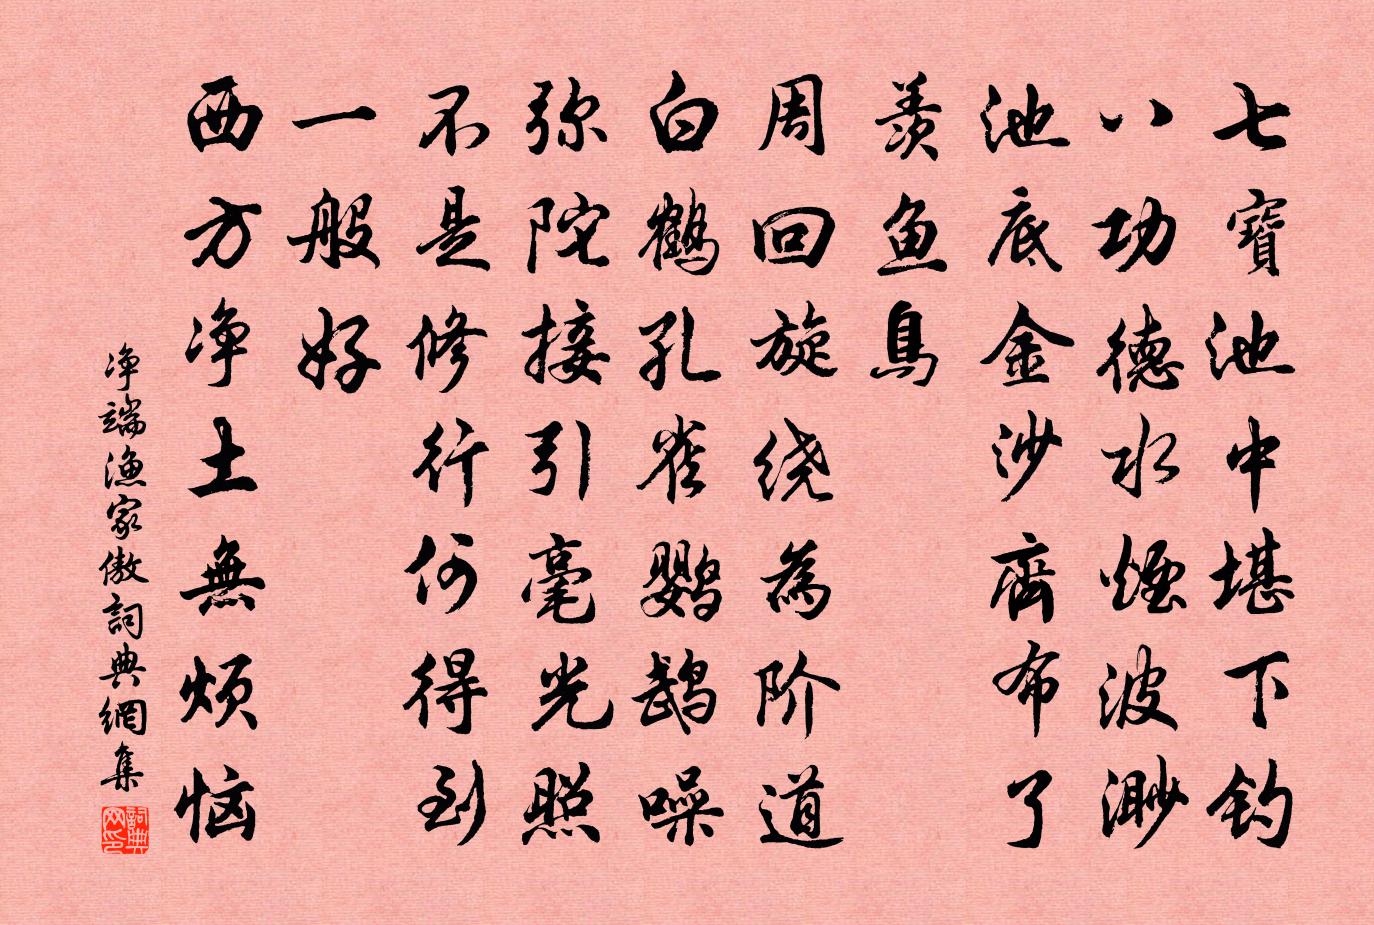 七寶池中堪下钓
八功德水煙波渺
池底金沙齊布了
羡鱼鳥
周回旋绕為阶道
白鹤孔雀鹦鹉噪
弥陀接引毫光照
不是修行何得到
一般好
西方净土無烦恼
净端渔家傲詞典網集
詞典网印